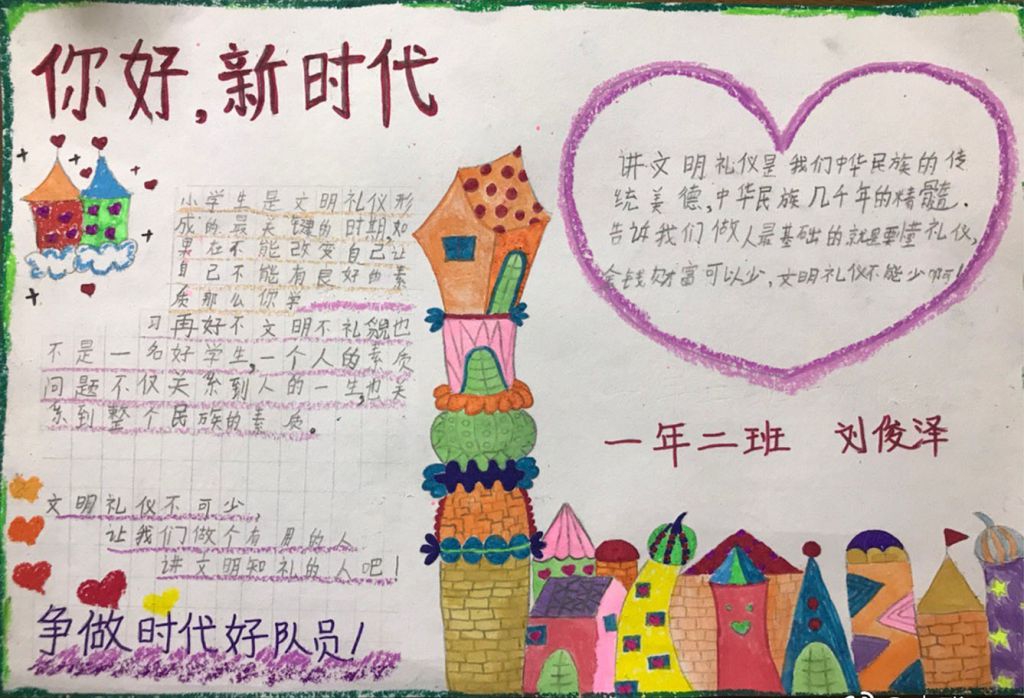 你好,新时代
小学生是文明礼仪形
成的最关键的时期,如
果在不能改变自己让
自己不能有良好的素
质那么你学
习再好不文明不礼貌也
不是一名好学生,一个人的素质
问题不仅关系到人的一生,也关
系到整个民族的素质。
文明礼仪不可少,
让我们做个有用的人
讲文明知礼的人吧!
争做时代好队员!
讲文明礼仪是我们中华民族的传
统美德,中华民族几千年的精髓.
告诉我们做人最基础的就是要懂礼仪,
金钱财富可以少,文明礼仪不能少啊!
一年二班 刘俊泽